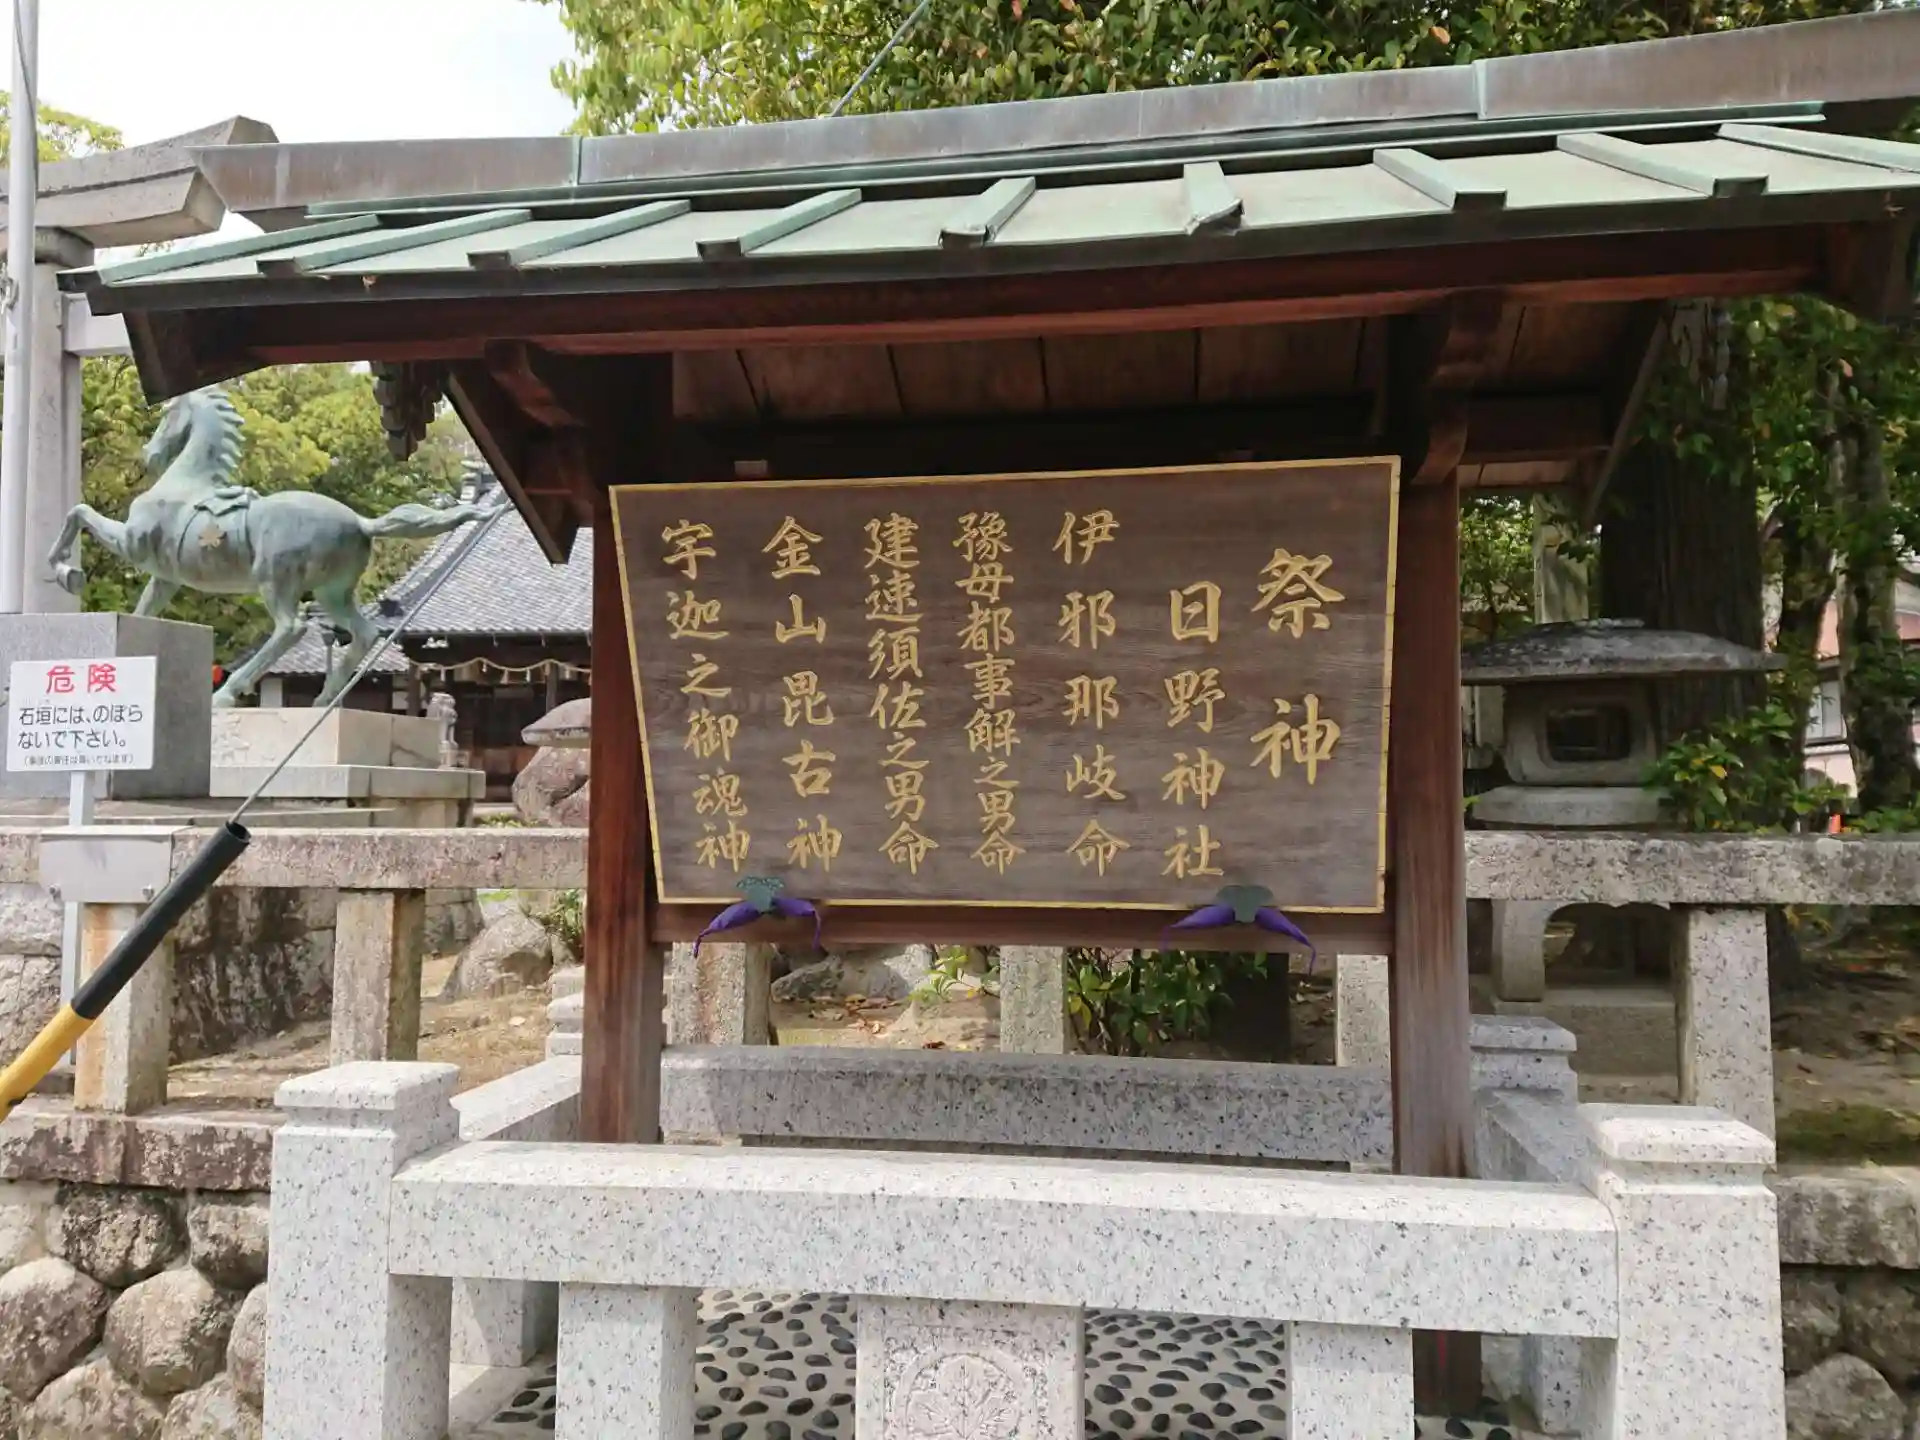 祭神
日野神社
伊邪那岐命
豫母都事解之男命
建速須佐之男命
金山毘古神
宇迦之御魂神
危険
石垣には、のぼら
ないで下さい。
(事故の責任は負いかねます)